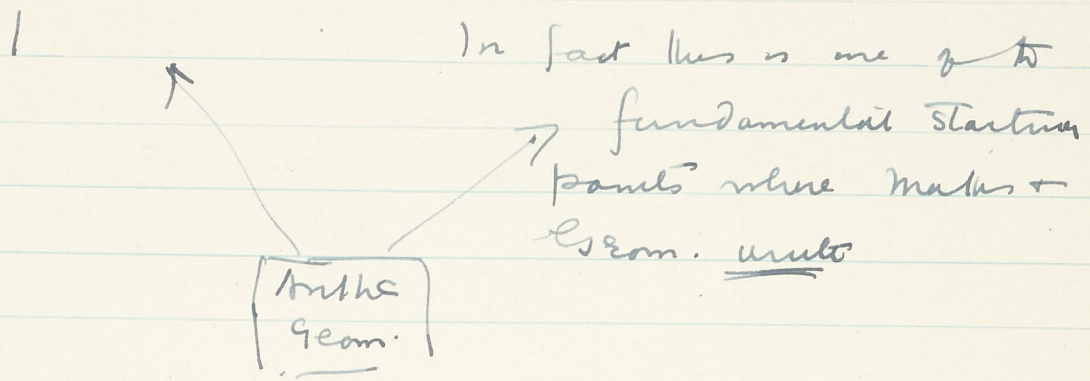 In fact this is one of the
fundamental starting
points where Maths +
Geom. unite
Arith
Geom.